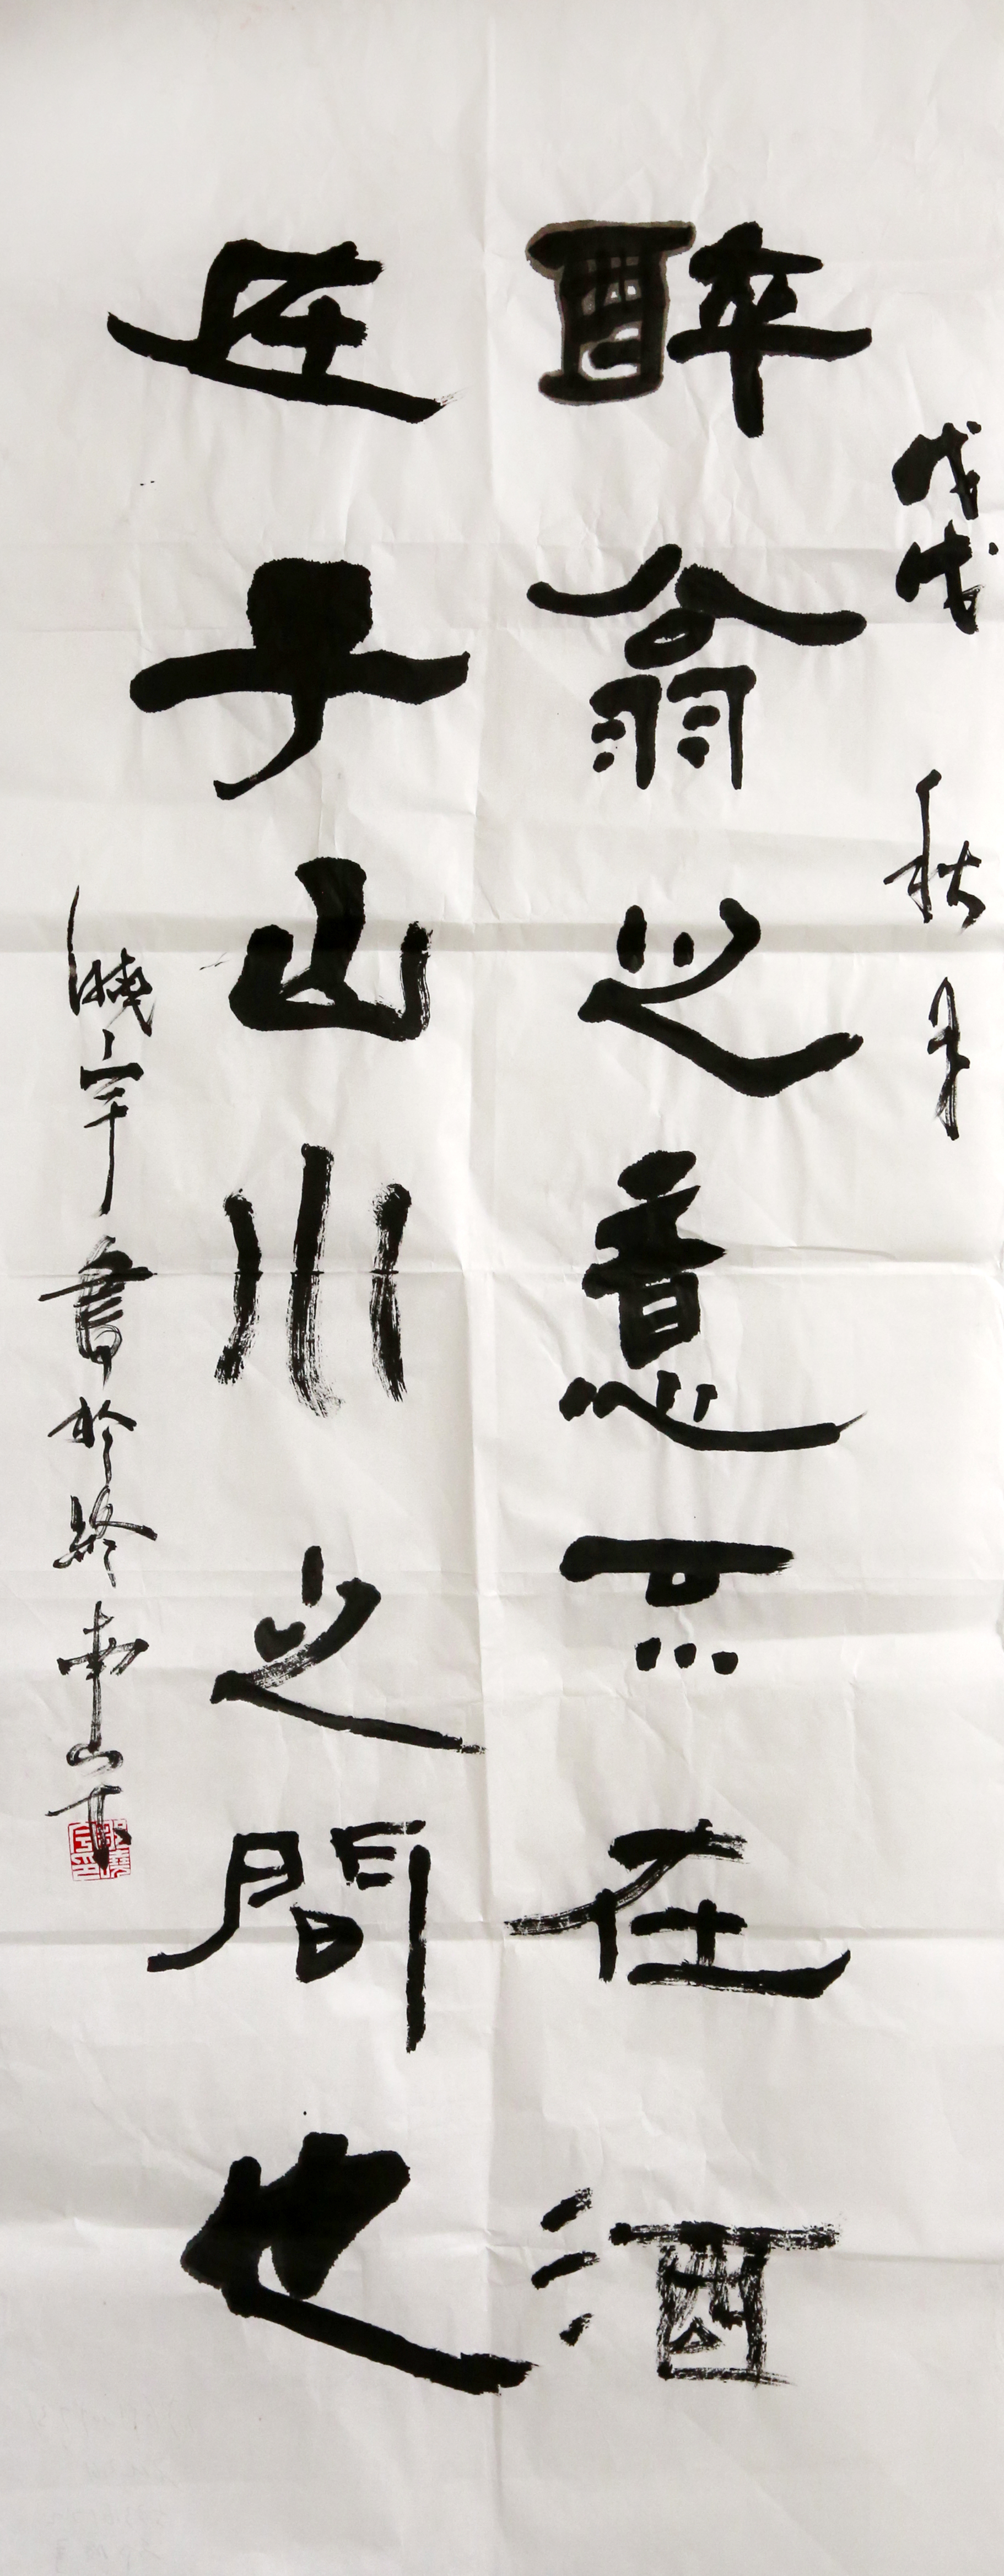 戊戌秋月
醉翁之意不在酒
在子山川之間也
曉宇書於終南山下